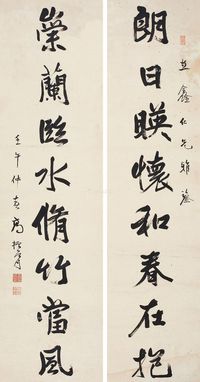 朗日暎懷和春在抱
鑫仁兄雅鑒
榮蘭臨水脩竹當風
壬午仲